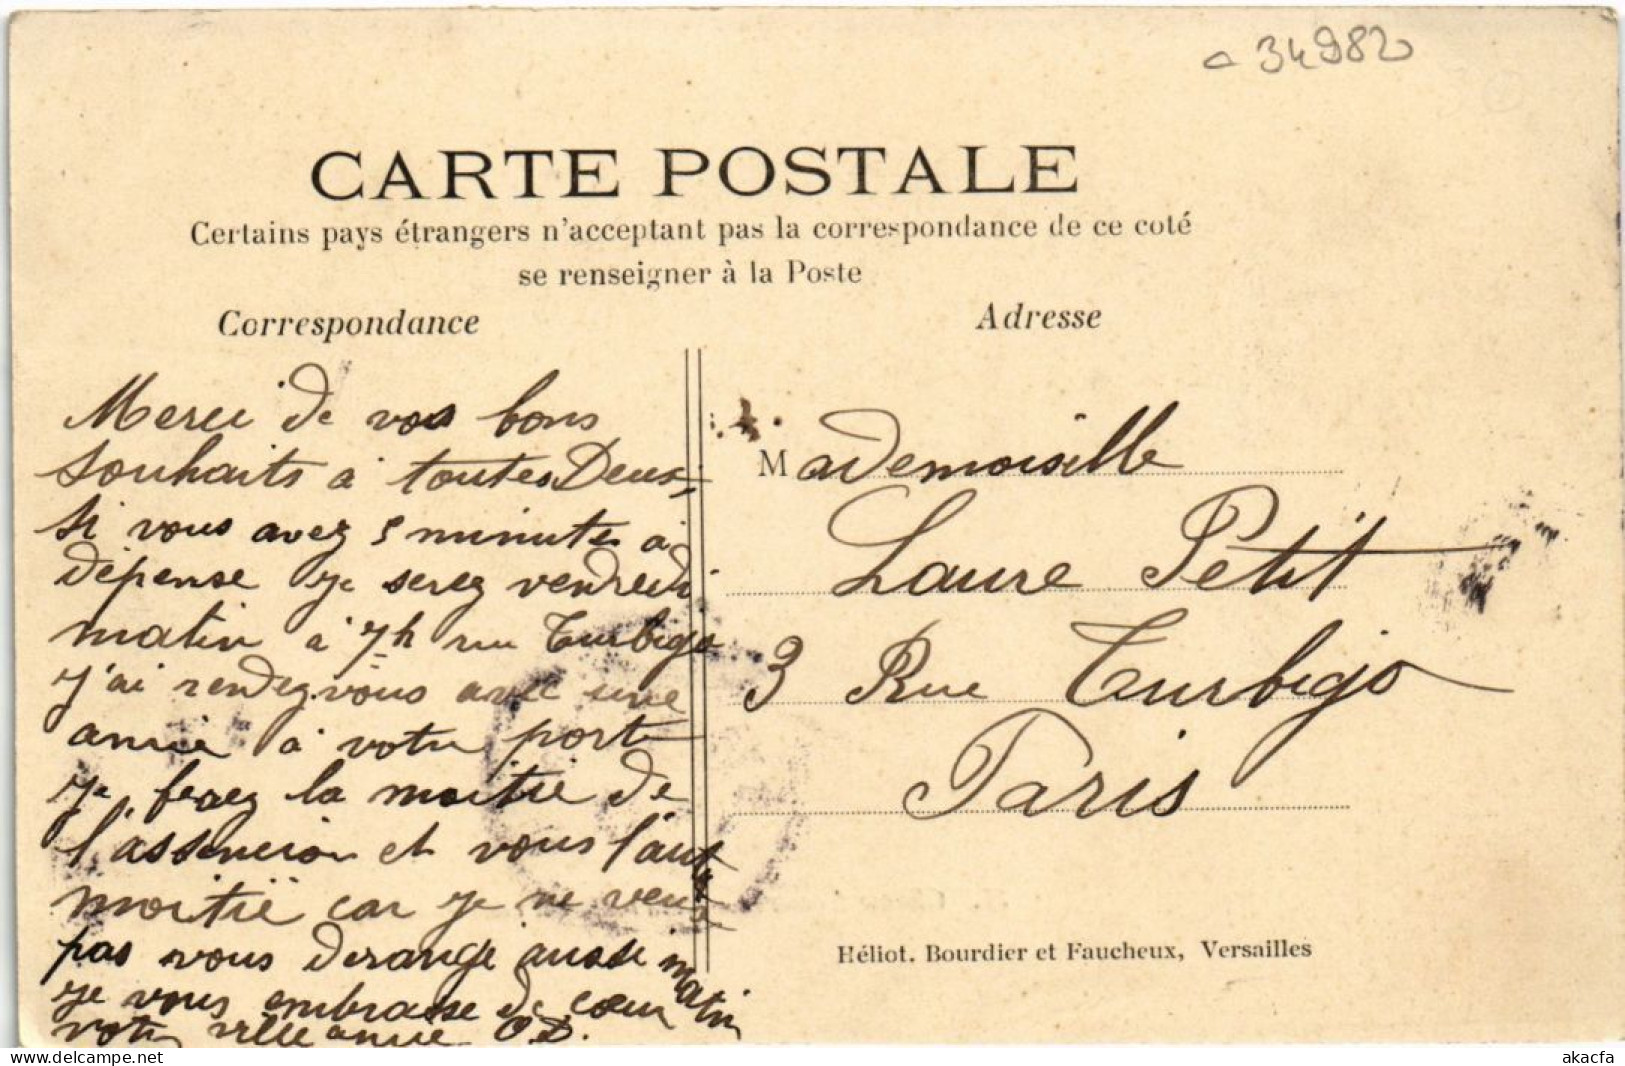 34982
CARTE POSTALE
Certains pays étrangers n'acceptant pas la correspondance de ce coté
se renseigner à la Poste
Correspondance
Adresse
Merci de vos bons
souhaits à toutes Deux,
si vous avez 5 minutes à
dépense je serez vendredi
matin à 7h rue Turbigo
j'ai rendez vous avec une
amie à votre porte
je ferez la moitié de
l'assencion et vous l'autre
moitié car je ne veux
pas vous derangé aussi matin
je vous embrasse de cœur
votre amie O.D.
Mademoiselle
Laure Petit
3 Rue Turbigo
Paris
Héliot. Bourdier et Faucheux, Versailles
delcampe.net
akacfa